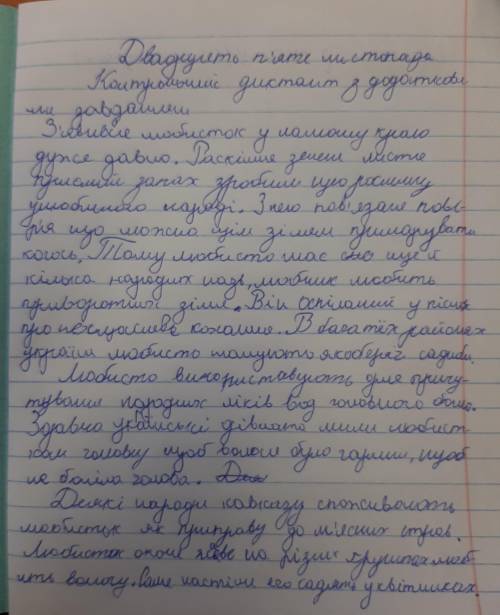 Двадцять п'яте листопада
Контрольний диктант з додаткови
ми завданнями
З'явився любисток у нашому краю
дуже давно. Розкішне зелене листя
приємний запах зробили цю рослину
улюбленого народі. З нею пов'язане пові-
р'я що можна цім зіллєм причарувати
когось, Тому любисто має ще й
кілька народних назв, любчик любить
приворотний зілля. Він оспіваний у пісня
про нещасливе кохання. В багатьх районах
україни любисто шанують якоберіг садиби.
Любисто використовують для пригу-
тування народних ліків вод головного болю.
Здавна українські дівчата мили любист-
ком головку щоб волося було гарним, щоб
не боліла голова.
Деякі народи кавказу споживають
любисток як приправу до м'ясних страв.
Любисток охоче живе на різних грунтах люб-
ить вологу. Саме частіни його садять уквітниках.